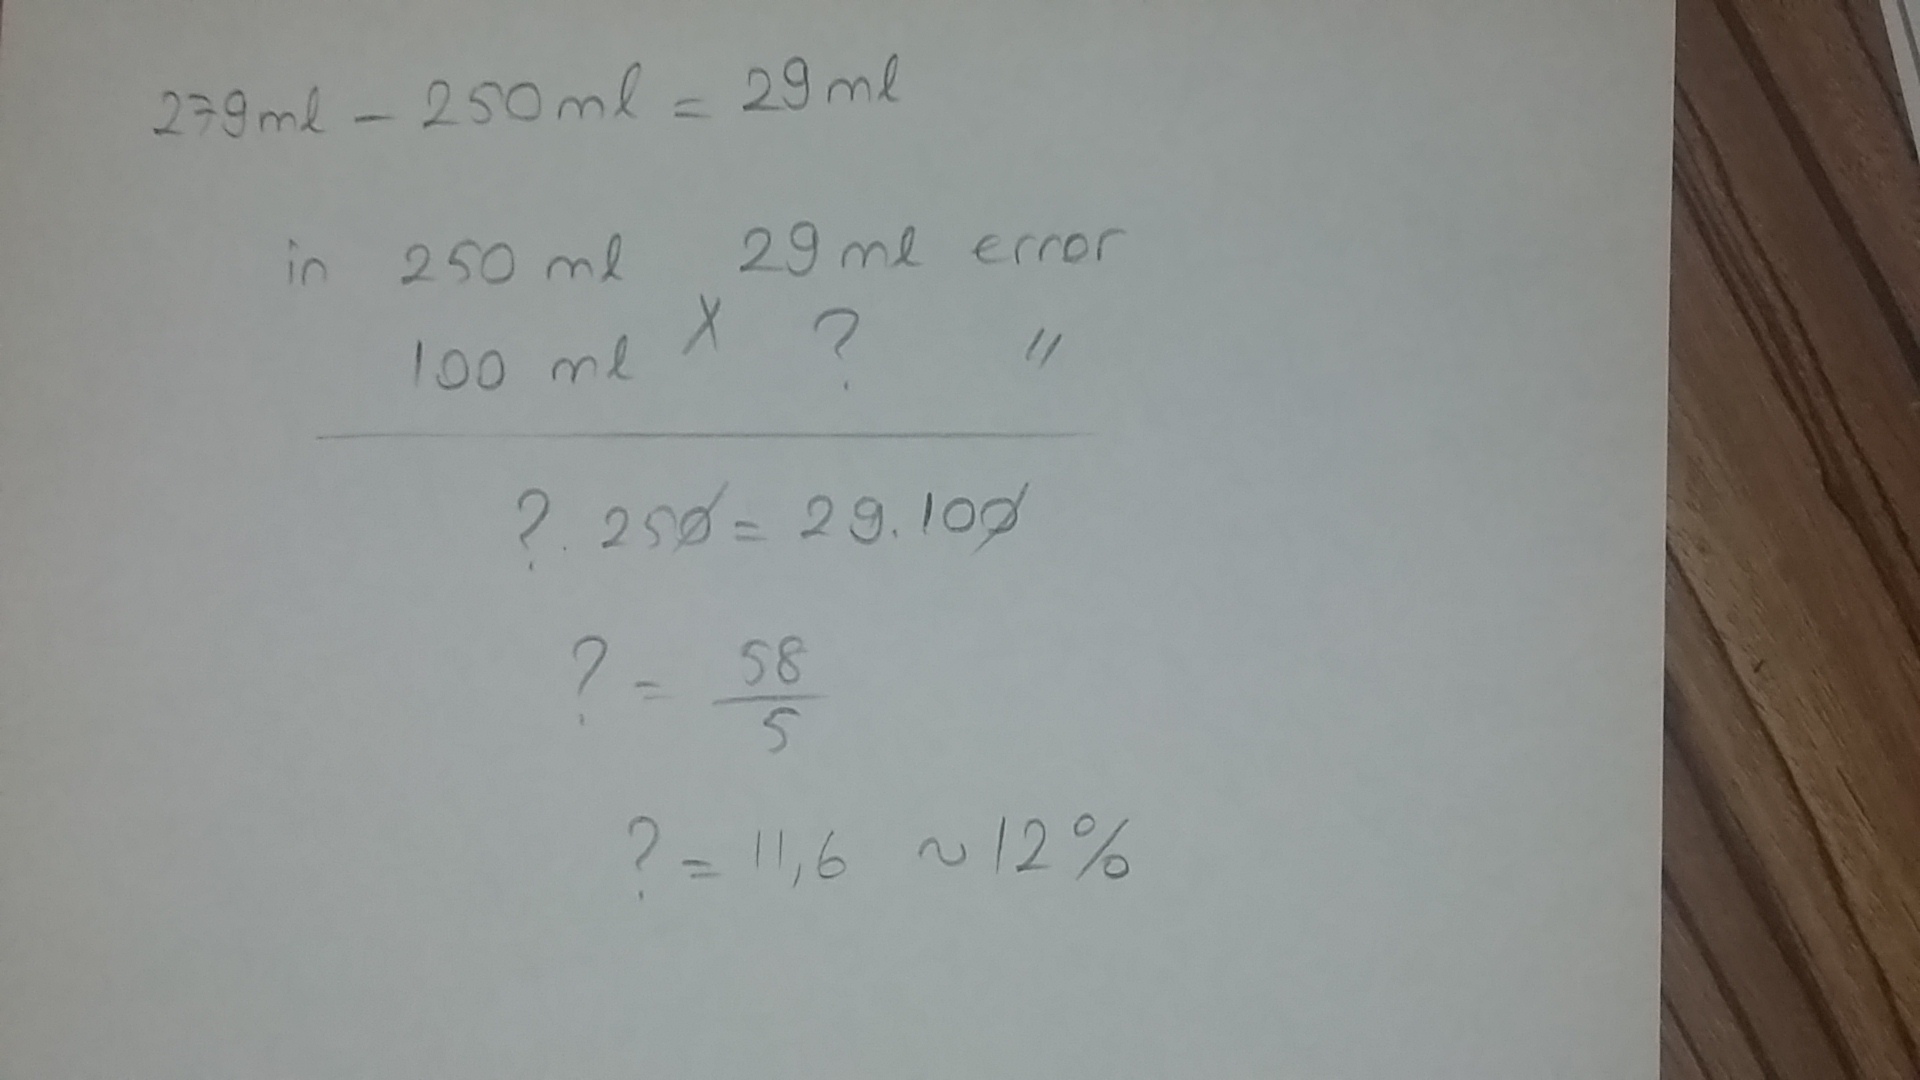 279ml - 250ml = 29ml
in 250 ml 29 ml error
100 ml X ? "
? . 250 = 29 . 100
? = 58/5
? = 11,6 ~ 12%